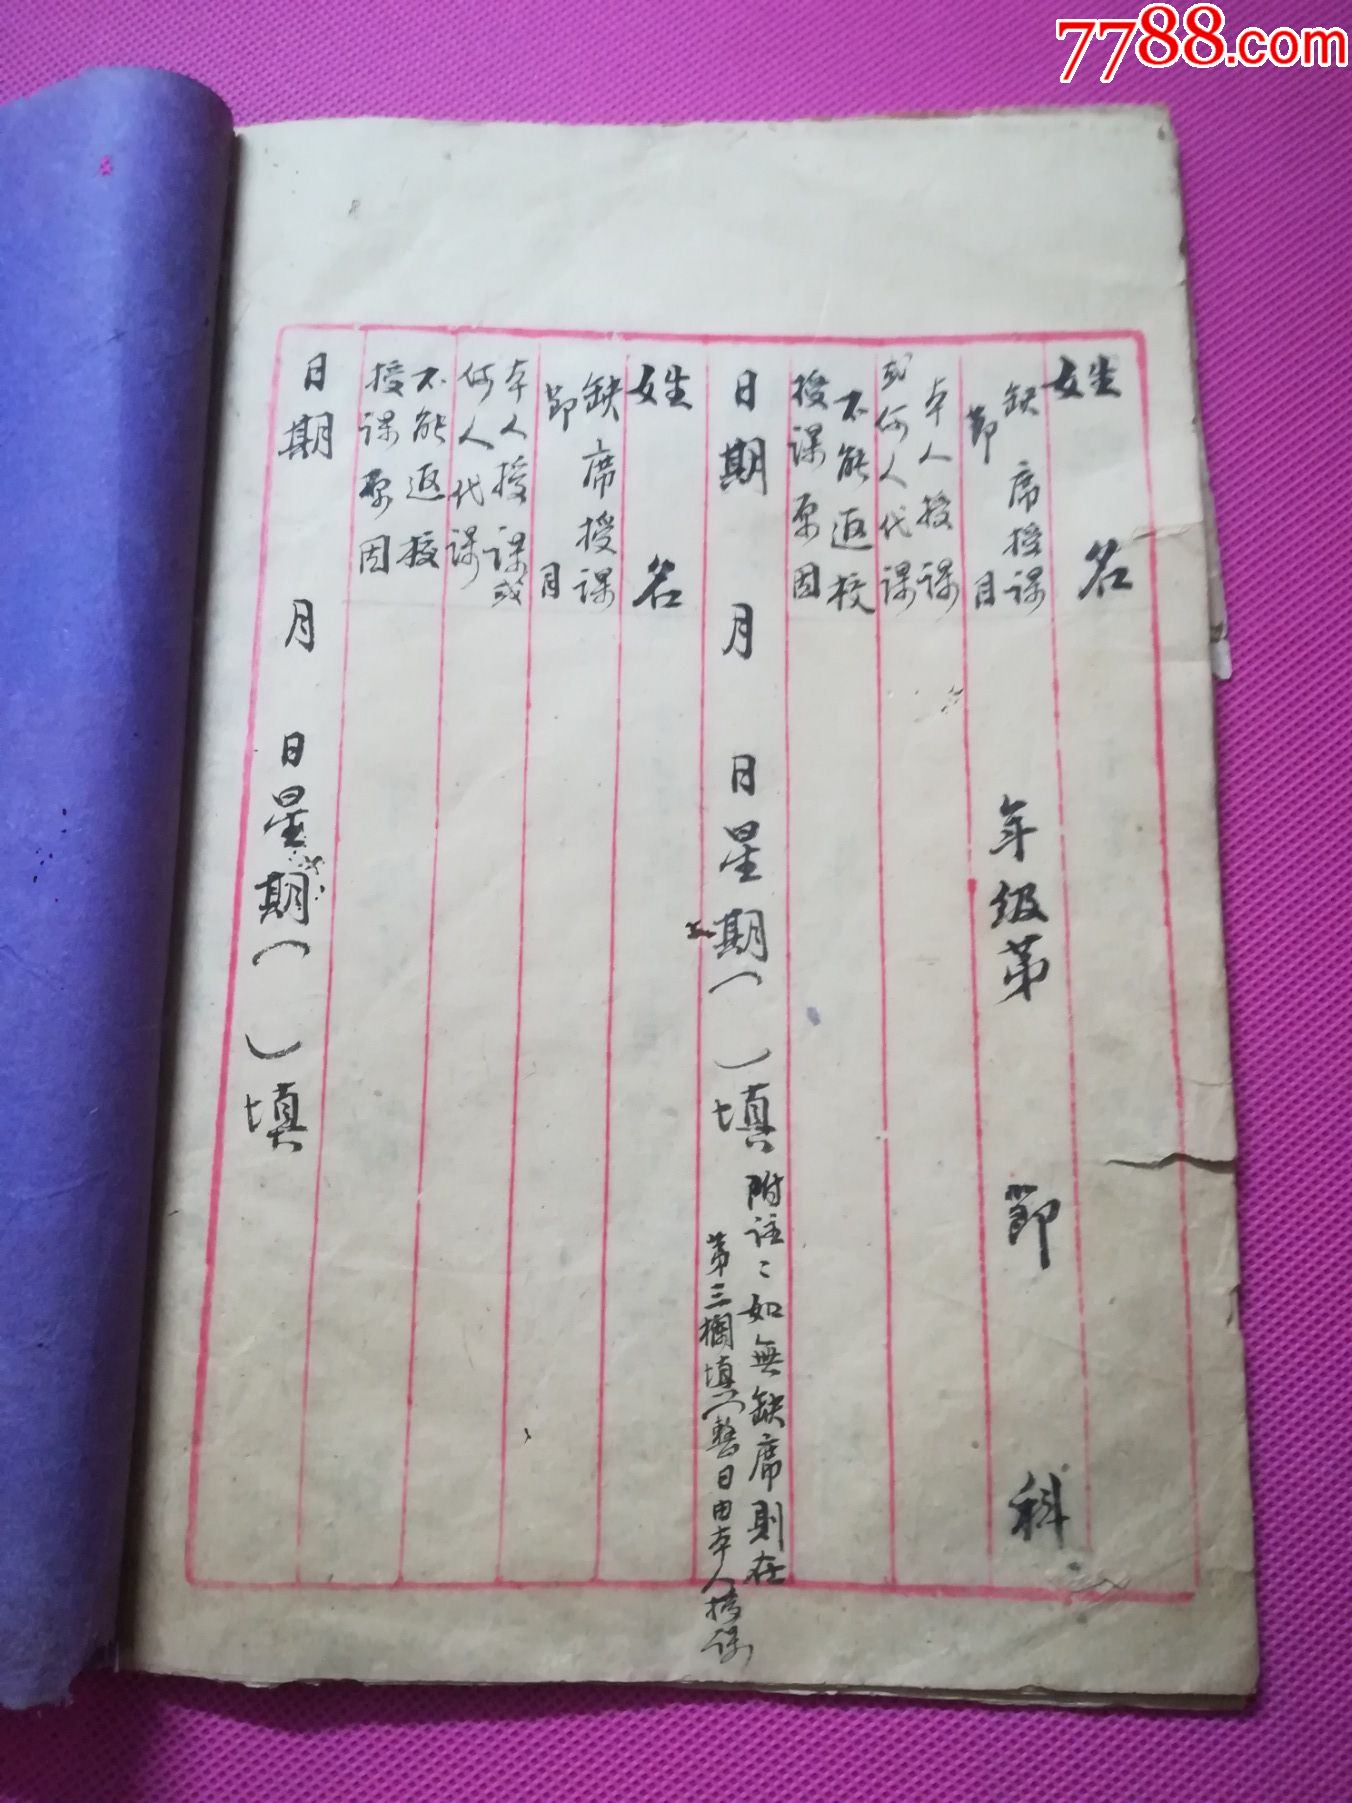 7788.com
姓名
缺席授课
節目
年级第 節 科
本人授课
或何人代课
不能返校
授课原因
日期 月 日星期( )填
附註:如無缺席則在
第三欄填"整日由本人授课
姓名
缺席授课
節目
本人授课或
何人代课
不能返校
授课原因
日期 月 日星期( )填